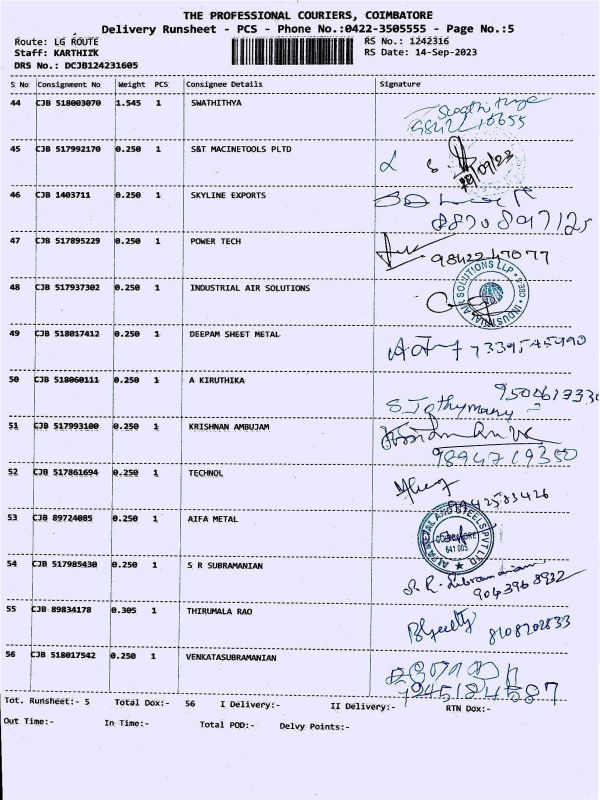 THE PROFESSIONAL COURIERS, COIMBATORE
Delivery Runsheet - PCS - Phone No.:0422-3505555 - Page No.:5
Route: LG ROUTE RS No.: 1242316
Staff: KARTHIIK RS Date: 14-Sep-2023
DRS No.: DCJB124231605
S No Consignment No Weight PCS Consignee Details Signature
44 CJB 518003070 1.545 1 SWATHITHYA
45 CJB 517992170 0.250 1 S&T MACINETOOLS PLTD
46 CJB 1403711 0.250 1 SKYLINE EXPORTS
8870897125
47 CJB 517895229 0.250 1 POWER TECH
9842247077
48 CJB 517937302 0.250 1 INDUSTRIAL AIR SOLUTIONS
INDUSTRIAL AIR SOLUTIONS LLP
49 CJB 518017412 0.250 1 DEEPAM SHEET METAL
50 CJB 518060111 0.250 1 A KIRUTHIKA
51 CJB 517993100 0.250 1 KRISHNAN AMBUJAM
9894719350
52 CJB 517861694 0.250 1 TECHNOL
53 CJB 89724085 0.250 1 AIFA METAL
COIMBATORE
641 003
54 CJB 517985430 0.250 1 S R SUBRAMANIAN
S. R. Subramaniam
9043968932
55 CJB 89834178 0.305 1 THIRUMALA RAO
56 CJB 518017542 0.250 1 VENKATASUBRAMANIAN
Tot. Runsheet:- 5 Total Dox:- 56 I Delivery:- II Delivery:- RTN Dox:-
Out Time:- In Time:- Total POD:- Delvy Points:-